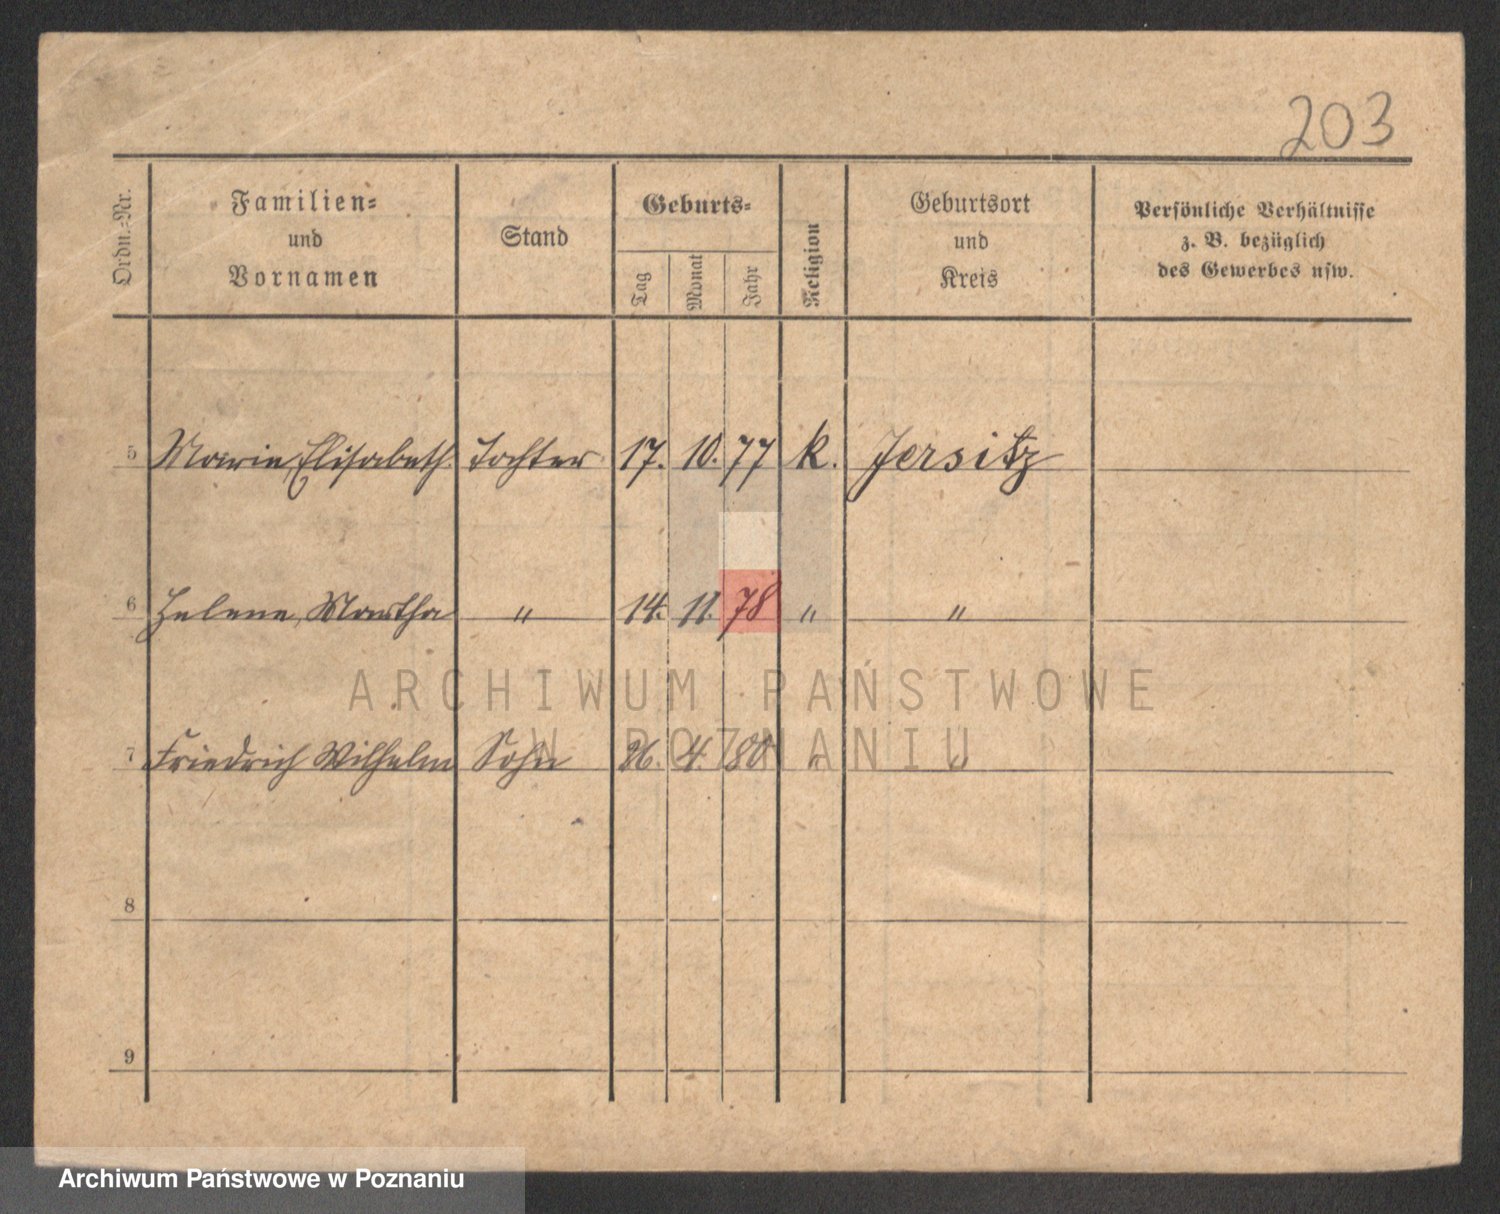 203
Ordn.-Nr.
Familien-
und
Vornamen
Stand
Geburts-
Tag
Monat
Jahr
Religion
Geburtsort
und
Kreis
Persönliche Verhältnisse
z. B. bezüglich
des Gewerbes usw.
5 Marie, Elisabeth. Tochter 17. 10. 77 k. Jersitz
6 Helene, Martha " 14. 11. 78 " "
ARCHIWUM PAŃSTWOWE
W POZNANIU
7 Friedrich Wilhelm Sohn 26. 4. 80 " "
8
9
Archiwum Państwowe w Poznaniu